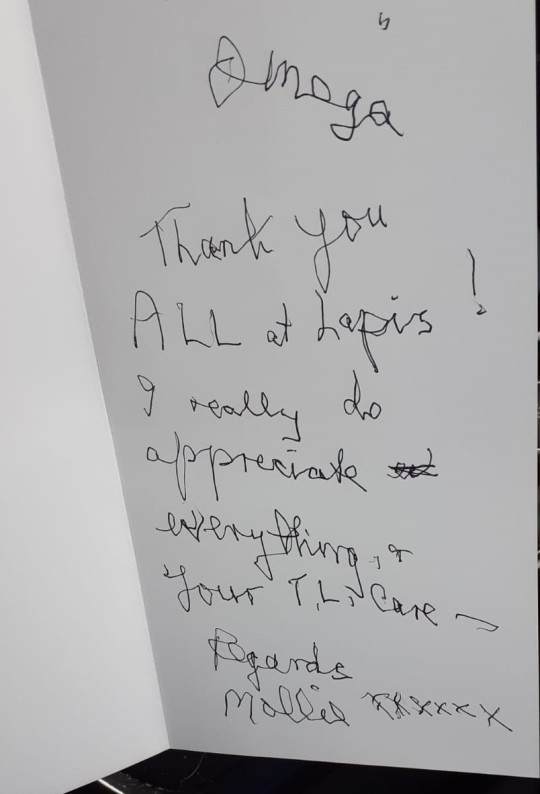 Omega
Thank you
ALL at Lapis !
I really do
appreciate
everything, +
Your T.L. Care —
Regards
Mollie xxxxxx